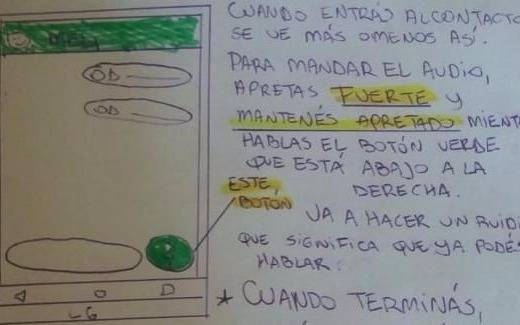 CUANDO ENTRÁS AL CONTACTO
SE VE MÁS OMENOS ASÍ.
PARA MANDAR EL AUDIO,
APRETAS FUERTE Y
MANTENÉS APRETADO MIENT
HABLAS EL BOTÓN VERDE
QUE ESTÁ ABAJO A LA
DERECHA.
ESTE,
BOTÓN
VA A HACER UN RUIDI
QUE SIGNIFICA QUE YA PODÉS
HABLAR.
* CUANDO TERMINÁS,
LG